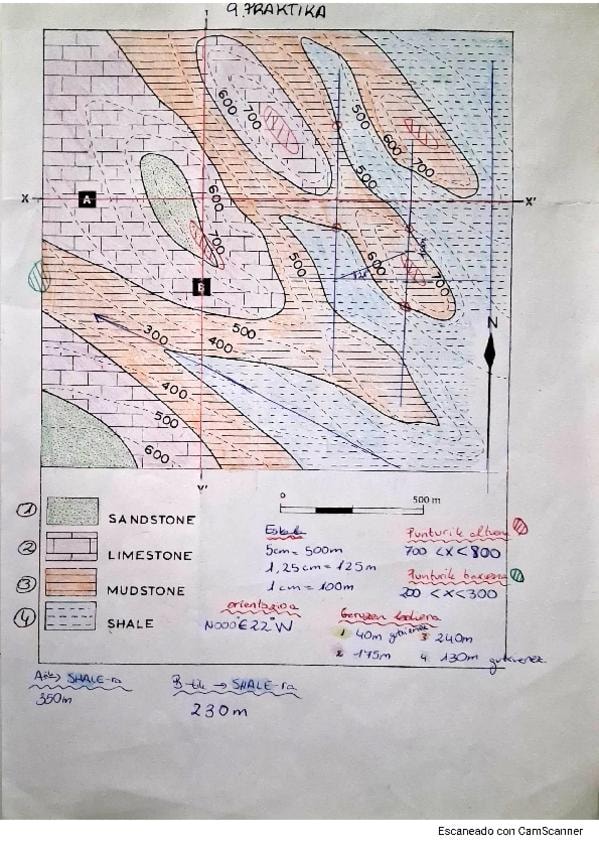 9. PRAKTIKA
Y'
600
700
500
600
700
500
X
A
600
X'
700
500
600
700
B
N
500
300
400
400
500
600
Y'
0
500 m
1
SANDSTONE
2
LIMESTONE
3
MUDSTONE
4
SHALE
Eskala
5cm = 500m
1,25cm = 125m
1cm = 100m
Punturik altuena
700 < x < 800
Punturik baxuena
200 < x < 300
orientazioa
N000°E 22°W
Geruzen lodiera
1 40m gutxienez
3 240m
2 175m
4 130m gutxienez
A-tik → SHALE-ra
350m
B-tik → SHALE-ra
230m
Escaneado con CamScanner